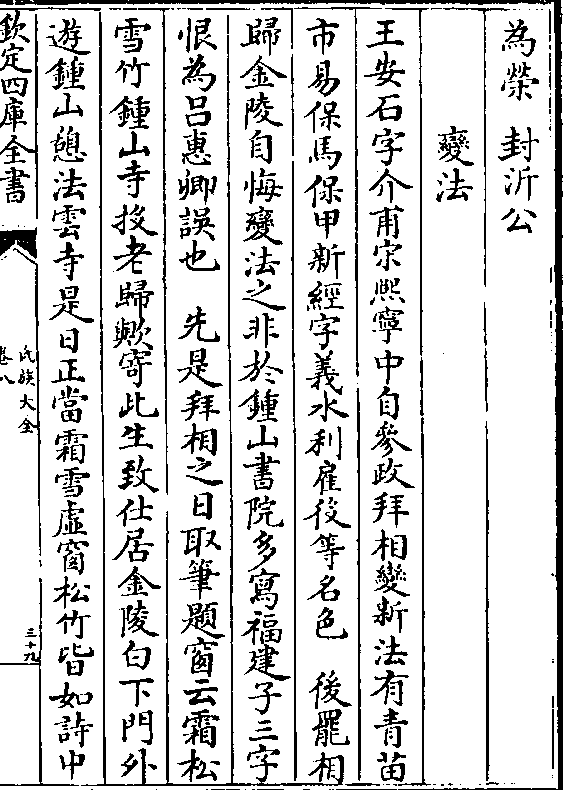 為榮　封沂公
變法
王安石字介甫宋熙寧中自參政拜相變新法有青苗
市易保馬保甲新經字義水利雇役等名色　後罷相
歸金陵自悔變法之非於鍾山書院多寫福建子三字
恨為呂惠卿誤也　先是拜相之日取筆題窗云霜松
雪竹鍾山寺投老歸歟寄此生致仕居金陵白下門外
遊鍾山憩法雲寺是日正當霜雪虛窗松竹皆如詩中
欽定四庫全書
氏族大全
卷八
三十九